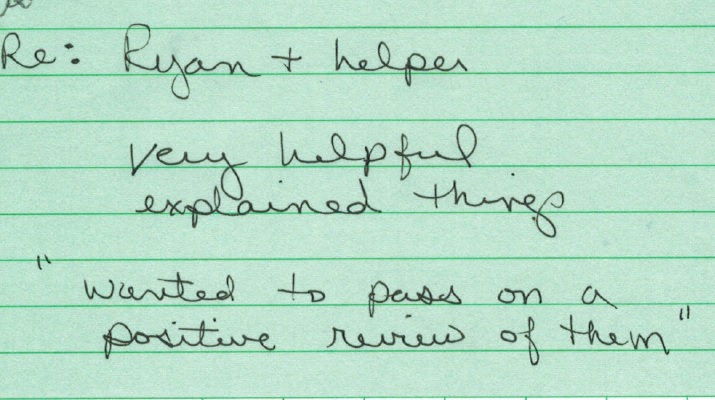 Re: Ryan + helper
Very helpful
explained things
"Wanted to pass on a
positive review of them"